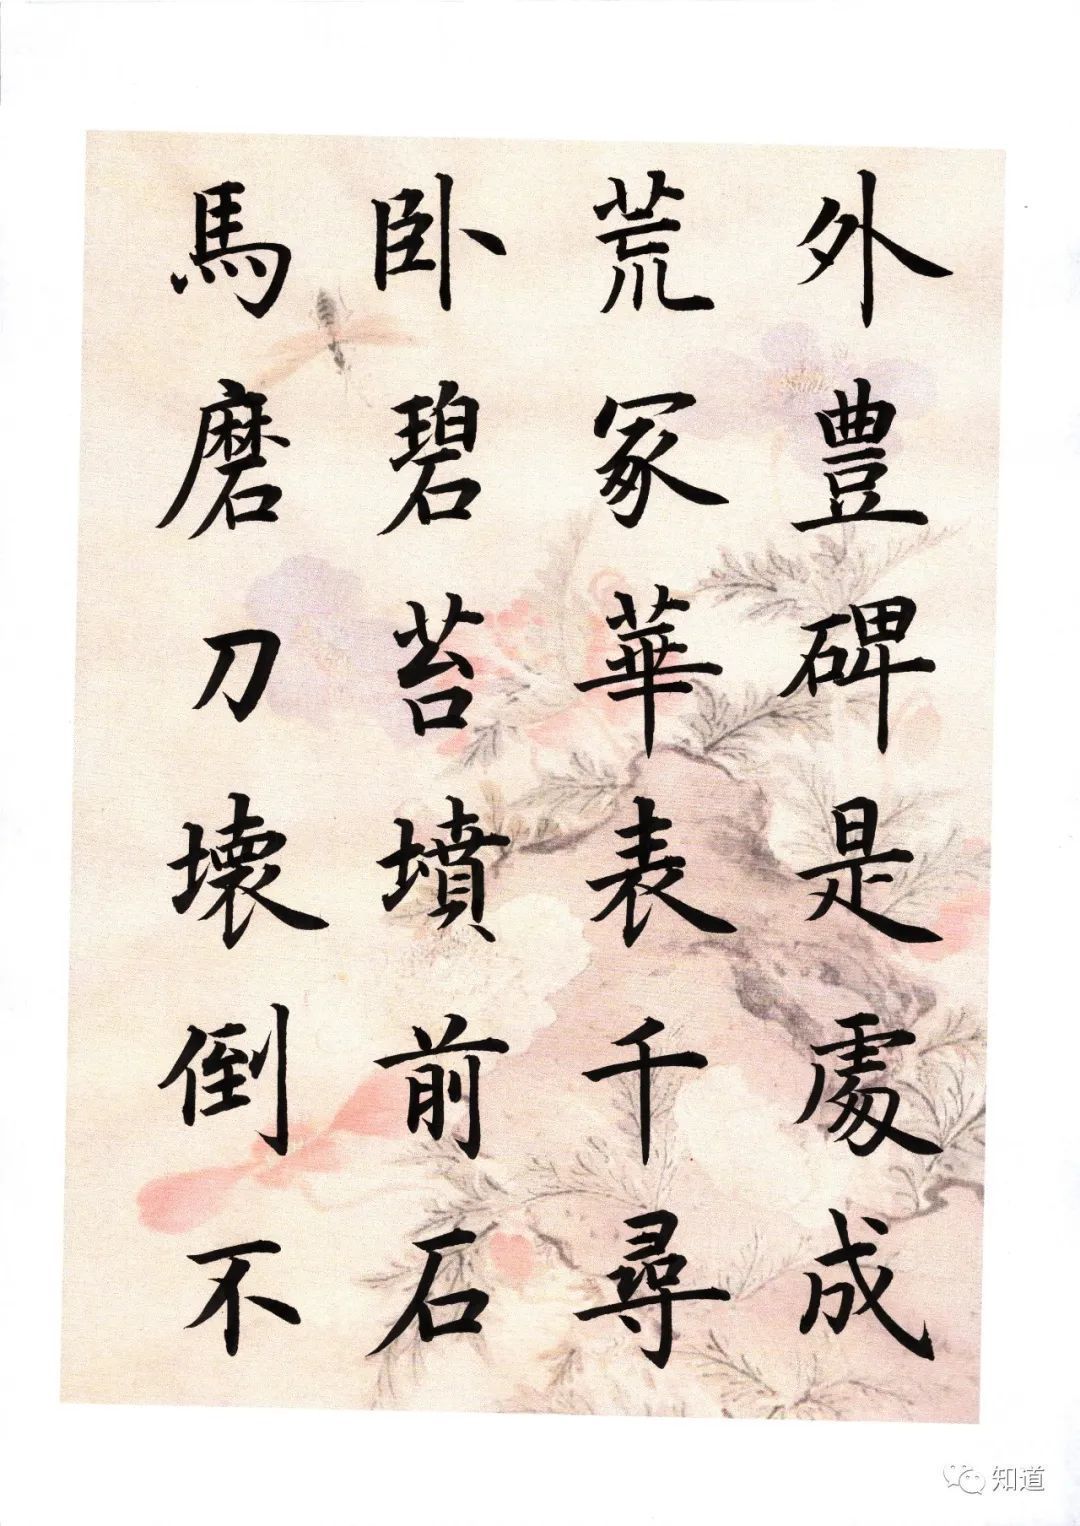 外豊碑是處成
荒冢華表千尋
卧碧苔墳前石
馬磨刀壞倒不
知道